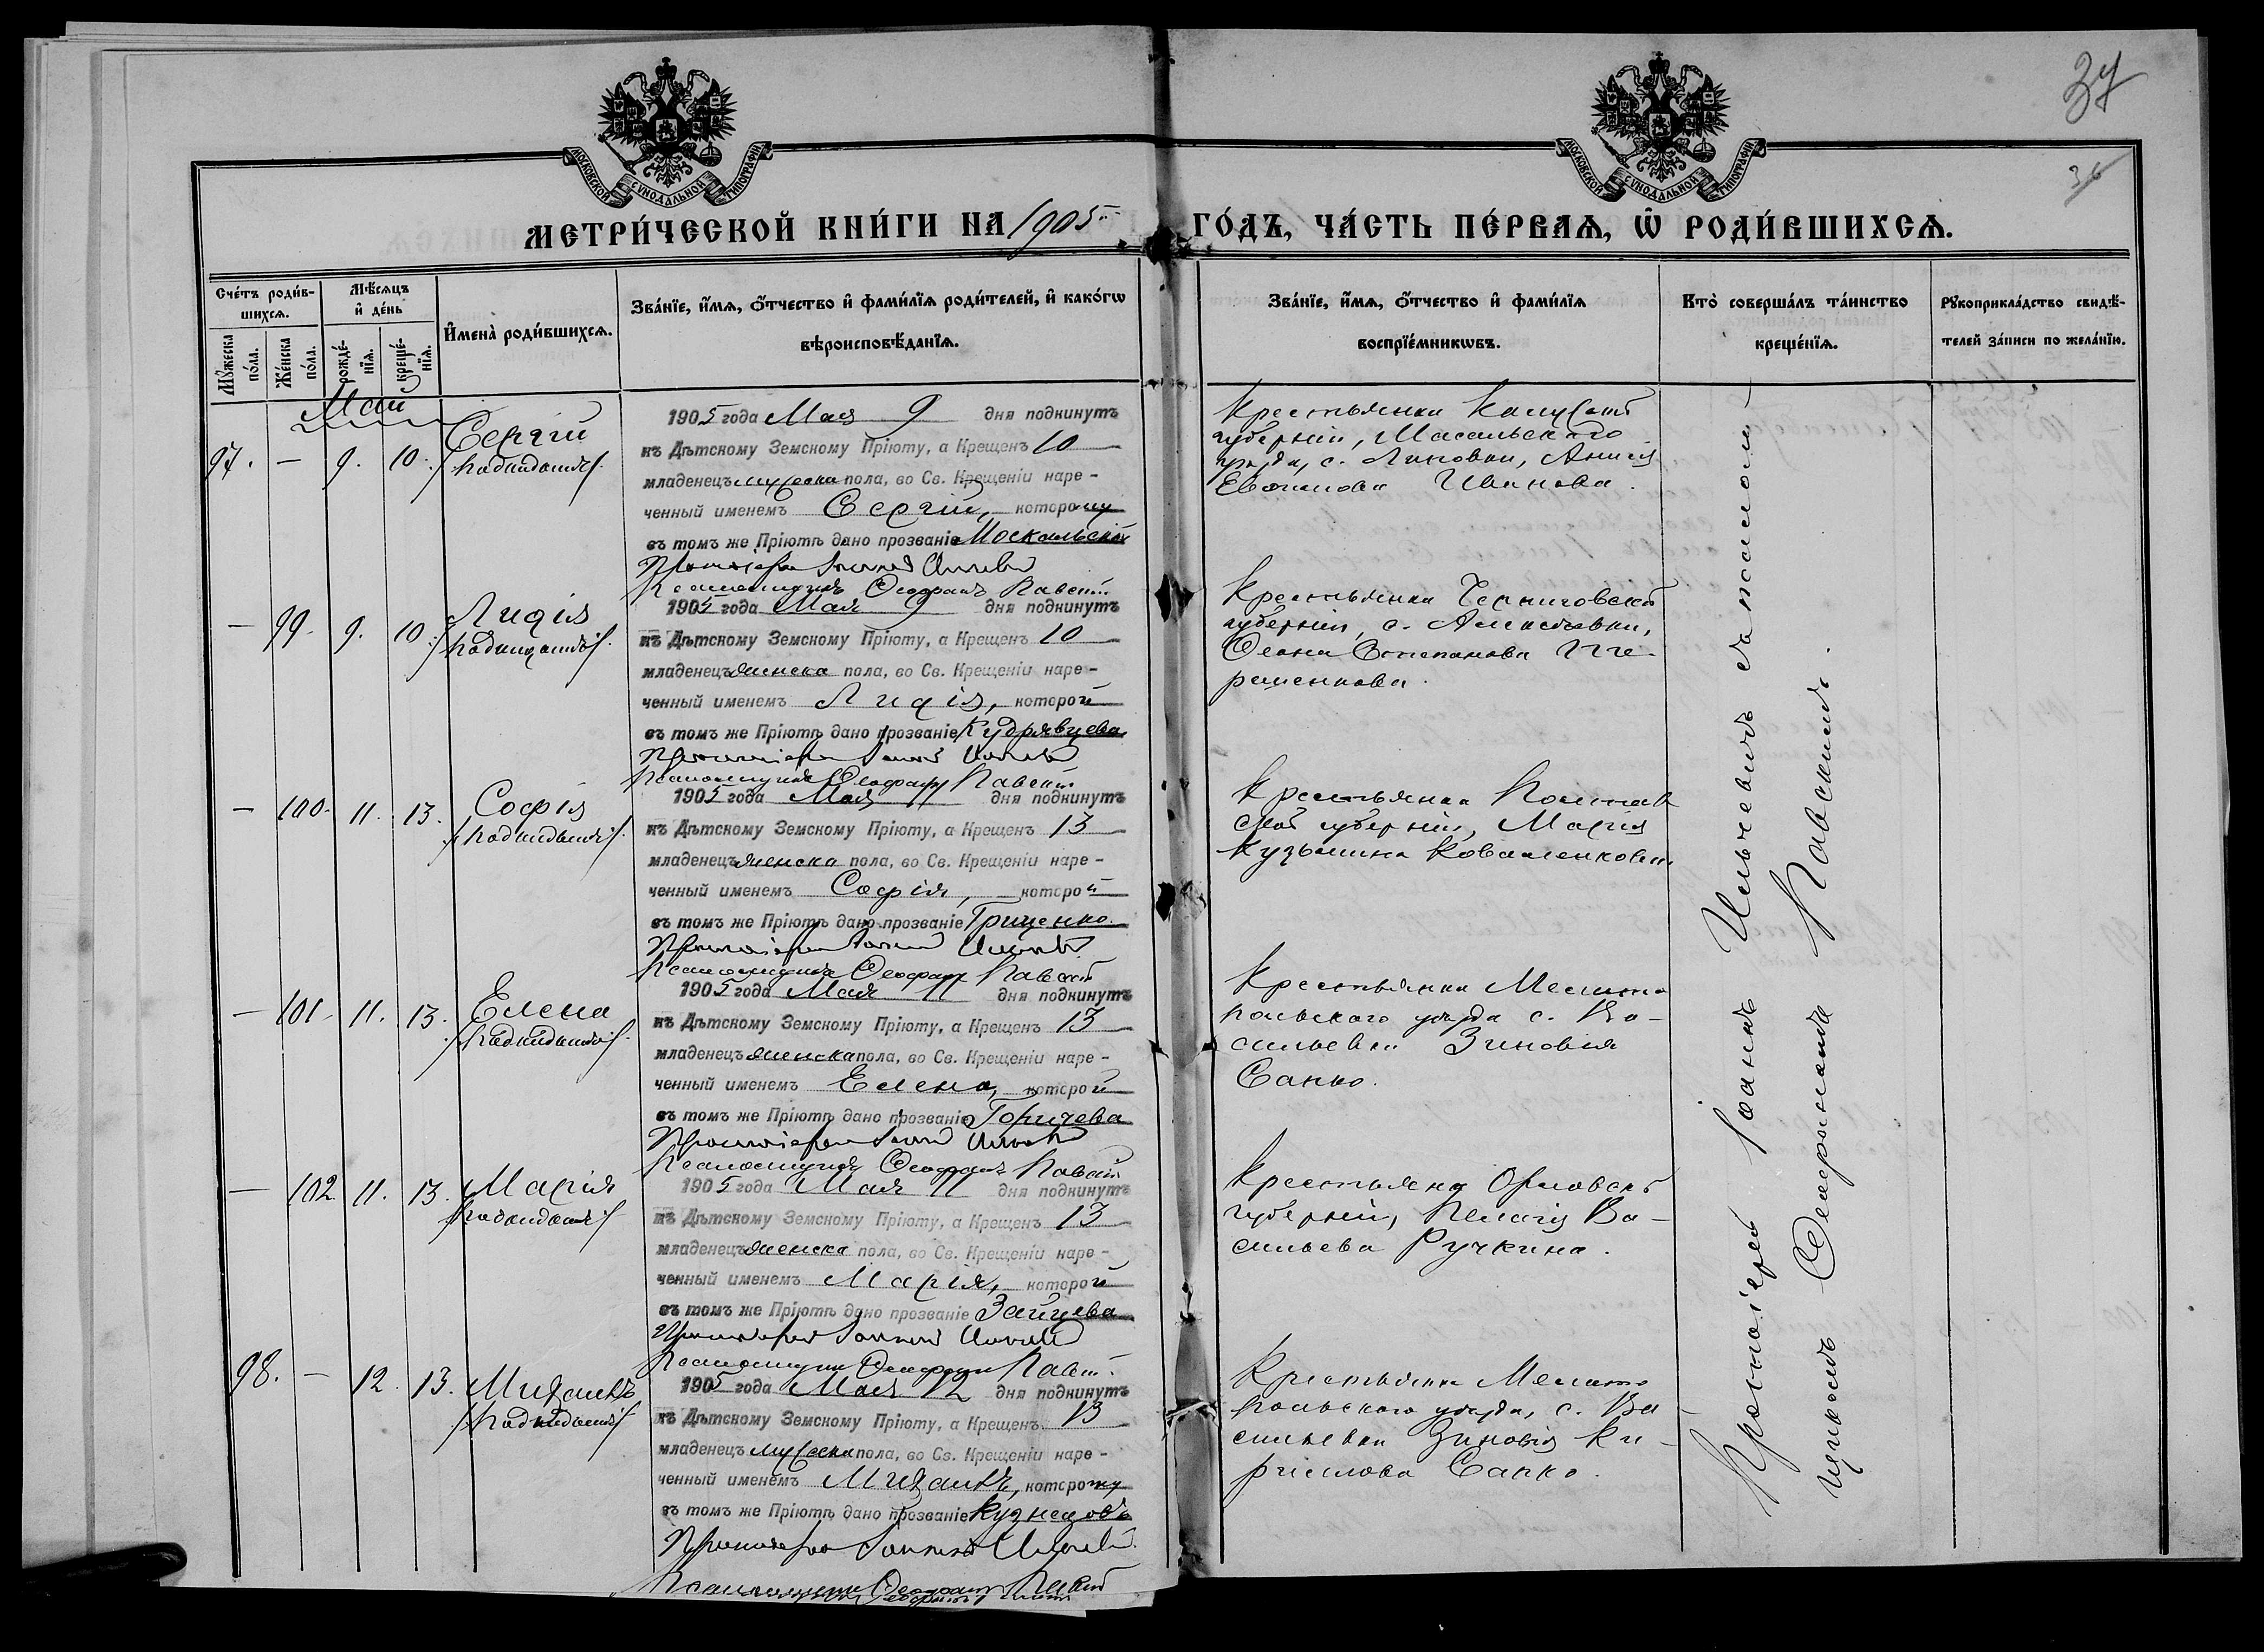 37
36
МОСКОВСКОЙ СѴНОДАЛЬНОЙ ТИПОГРАФІИ
МОСКОВСКОЙ СѴНОДАЛЬНОЙ ТИПОГРАФІИ
МЕТРИ́ЧЕСКОЙ КНИ́ГИ НА 1905
ГО́ДЪ, ЧА́СТЬ ПЕ́РВАѦ, Ѿ РОДИ́ВШИХСѦ.
Сче́тъ роди́в-
шихсѧ.
Мꙋ́жеска по́ла.
Же́нска по́ла.
Мѣ́сѧцъ
и҆ де́нь
рожде́-
нїѧ.
креще́-
нїѧ.
И҆мена̀ роди́вшихсѧ.
Зва́нїе, и҆́мѧ, ѻ҆́тчество и҆ фами́лїѧ роди́телей, и҆ како́гѡ
вѣроисповѣ́данїѧ.
Зва́нїе, и҆́мѧ, ѻ҆́тчество и҆ фами́лїѧ
воспрїе́мникѡвъ.
Кто̀ соверша́лъ та́инство
креще́нїѧ.
Рꙋкоприкла́дство свидѣ́-
телей за́писи по жела́нїю.
Май
97. — 9. 10. Сергій
/подкидышъ/.
1905 года Мая 9 дня подкинутъ
къ Дѣтскому Земскому Пріюту, а Крещенъ 10
младенецъ мужеска пола, во Св. Крещеніи наре-
ченный именемъ Сергій, которому
въ томъ же Пріютѣ дано прозваніе
Протоіерей Іоаннъ
Псаломщикъ Феофанъ Павскій
Крестьянка Калужской
губерніи, Масальскаго
уѣзда, с. Анисія
Иванова.
— 99. 9. 10. Лидія
/подкидышъ/.
1905 года Мая 9 дня подкинутъ
къ Дѣтскому Земскому Пріюту, а Крещенъ 10
младенецъ женска пола, во Св. Крещеніи наре-
ченный именемъ Лидія, которой
въ томъ же Пріютѣ дано прозваніе Кудрявцева
Протоіерей Іоаннъ
Псаломщикъ Феофанъ Павскій
Крестьянка Черниговской
губерніи, с. Алексѣевки,
Степанова
— 100. 11. 13. Софія
/подкидышъ/.
1905 года Мая 11 дня подкинутъ
къ Дѣтскому Земскому Пріюту, а Крещенъ 13
младенецъ женска пола, во Св. Крещеніи наре-
ченный именемъ Софія, которой
въ томъ же Пріютѣ дано прозваніе Гриценко.
Протоіерей Іоаннъ
Псаломщикъ Феофанъ Павскій
Крестьянка Полтав
ской губерніи, Марія
Кузьмина Коваленкова
— 101. 11. 13. Елена
/подкидышъ/.
1905 года Мая 11 дня подкинутъ
къ Дѣтскому Земскому Пріюту, а Крещенъ 13
младенецъ женска пола, во Св. Крещеніи наре-
ченный именемъ Елена, которой
въ томъ же Пріютѣ дано прозваніе Горичева
Протоіерей Іоаннъ
Псаломщикъ Феофанъ Павскій
Крестьянка Мелито
польскаго уѣзда с. Ва-
сильевки Зиновія
Сапко.
— 102 11. 13. Марія
/подкидышъ/
1905 года Мая 11 дня подкинутъ
къ Дѣтскому Земскому Пріюту, а Крещенъ 13
младенецъ женска пола, во Св. Крещеніи наре-
ченный именемъ Марія, которой
въ томъ же Пріютѣ дано прозваніе Зайцева
Протоіерей Іоаннъ
Псаломщикъ Феофанъ Павскій
Крестьянка Орловской
губерніи, Пелагія Ва-
сильева Ручкина.
98. — 12. 13. Михаилъ
/подкидышъ/
1905 года Мая 12 дня подкинутъ
къ Дѣтскому Земскому Пріюту, а Крещенъ 13
младенецъ мужеска пола, во Св. Крещеніи наре-
ченный именемъ Михаилъ, которому
въ томъ же Пріютѣ дано прозваніе Кузнецовъ
Протоіерей Іоаннъ
Псаломщикъ Феофанъ Павскій
Крестьянка Мелито
польскаго уѣзда, с. Ва-
сильевки Зиновія Ки-
рилова Сапко.
Протоіерей Іоаннъ Ильчевичъ съ псалом-
щикомъ Павскимъ.